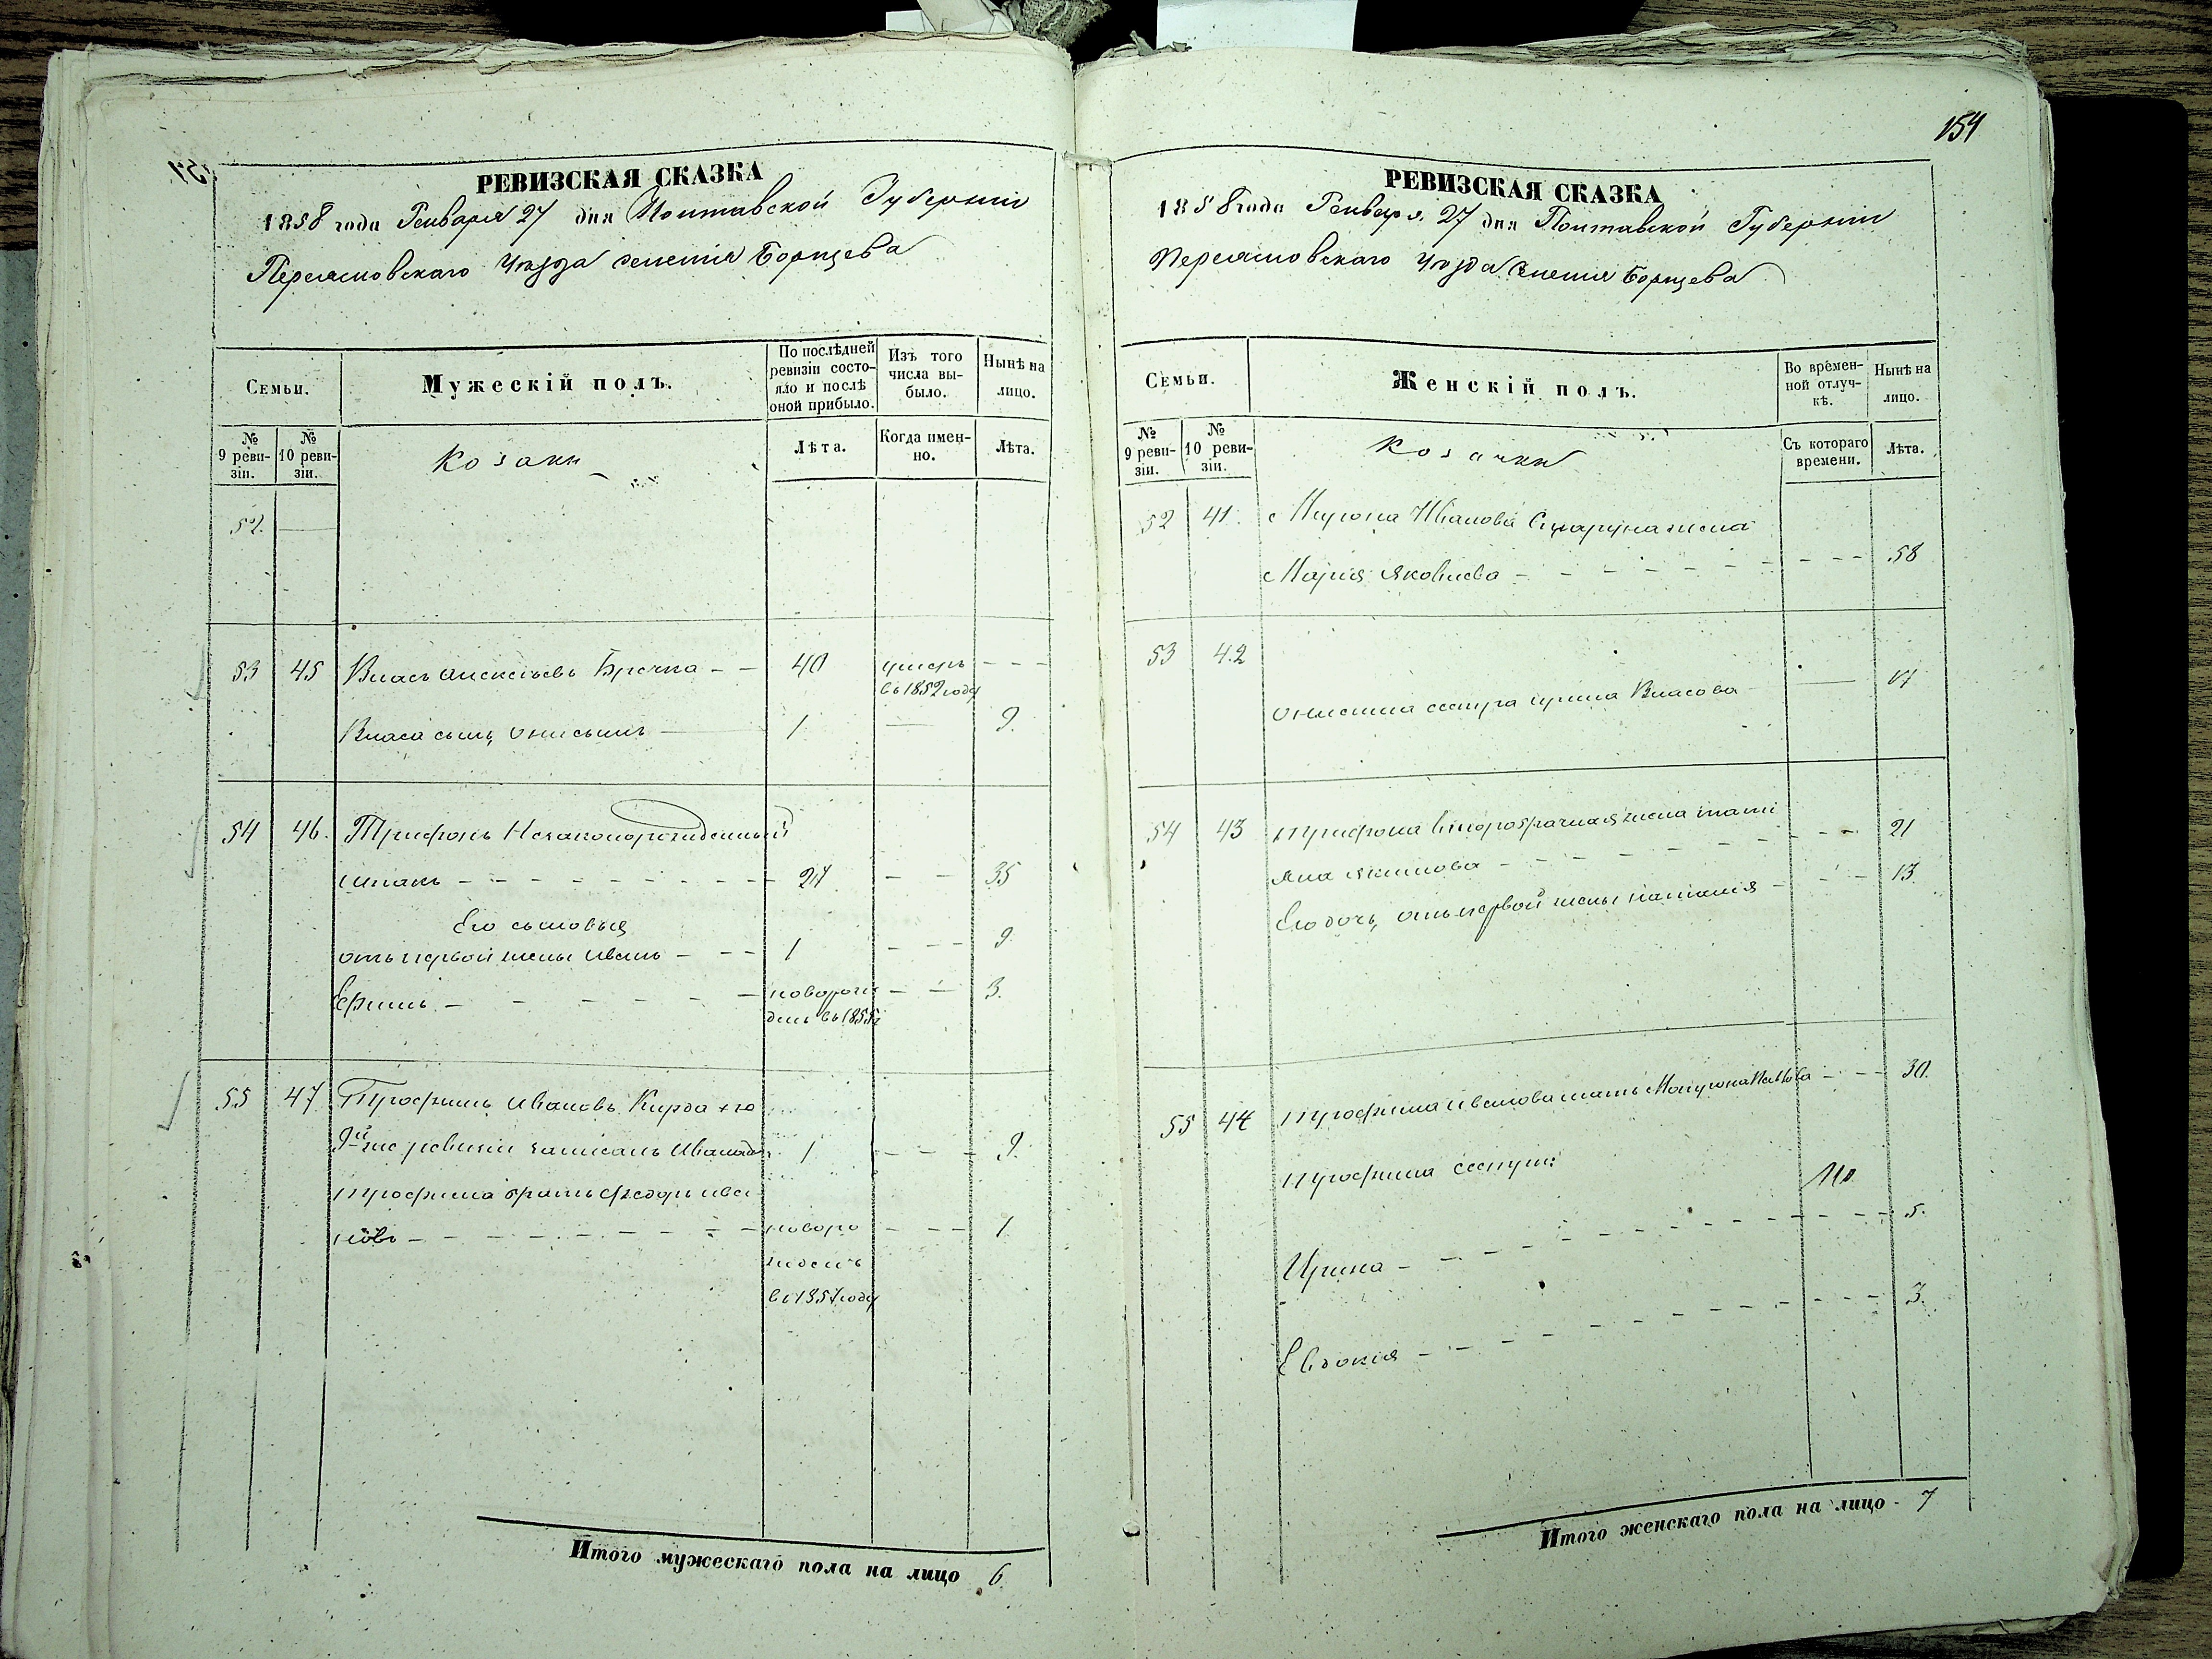 154
РЕВИЗСКАЯ СКАЗКА
1858 года Генваря 27 дня Полтавской Губерніи
Переяславскаго Уѣзда селенія Борщева
Семьи.
Мужескій полъ.
По послѣдней ревизіи состояло и послѣ оной прибыло.
Изъ того числа выбыло.
Нынѣ на лицо.
№ 9 ревизіи.
№ 10 ревизіи.
Козаки
Лѣта.
Когда именно.
Лѣта.
52.
53 45 Власъ Алексѣевъ Бречка 40 умеръ
въ 1852 году
Власа сынъ Онисимъ 1 9.
54 46. Трифонъ Незаконорожденный
24 35
Его сыновья
отъ первой жены Иванъ 1 9
Ефимъ новорож 3.
денъ въ 1855 г
55 47 Трофимъ Ивановъ Кирда
9й ревизіи записанъ 1 9.
Трофима братъ Федоръ Ива
новъ новоро 1
жденъ
въ 1857 году
Итого мужескаго пола на лицо 6.
154
РЕВИЗСКАЯ СКАЗКА
1858 года Генваря 27 дня Полтавской Губерніи
Переяславскаго Уѣзда селенія Борщева
Семьи.
Женскій полъ.
Во временной отлучкѣ.
Нынѣ на лицо.
№ 9 ревизіи.
№ 10 ревизіи.
Козачки
Съ котораго времени.
Лѣта.
52 41. Мирона Иванова жена
Марія Яковлева 58
53 42
Онисима сестра Ирина Власова 17
54 43 Трифона второбрачная жена Тати
яна Акимова 21
Его дочь отъ первой жены Наталія 13.
55 44 Трофима Иванова мать Матрона Павлова 30.
Трофима сестры:
Ирина 5.
Евдокія 3.
Итого женскаго пола на лицо 7